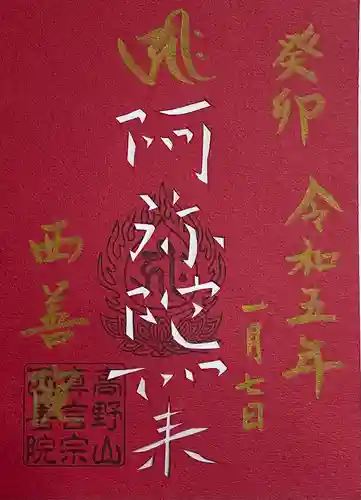 癸卯
令和五年
一月七日
阿弥陀如来
西善院
高野山
真言宗
西善院